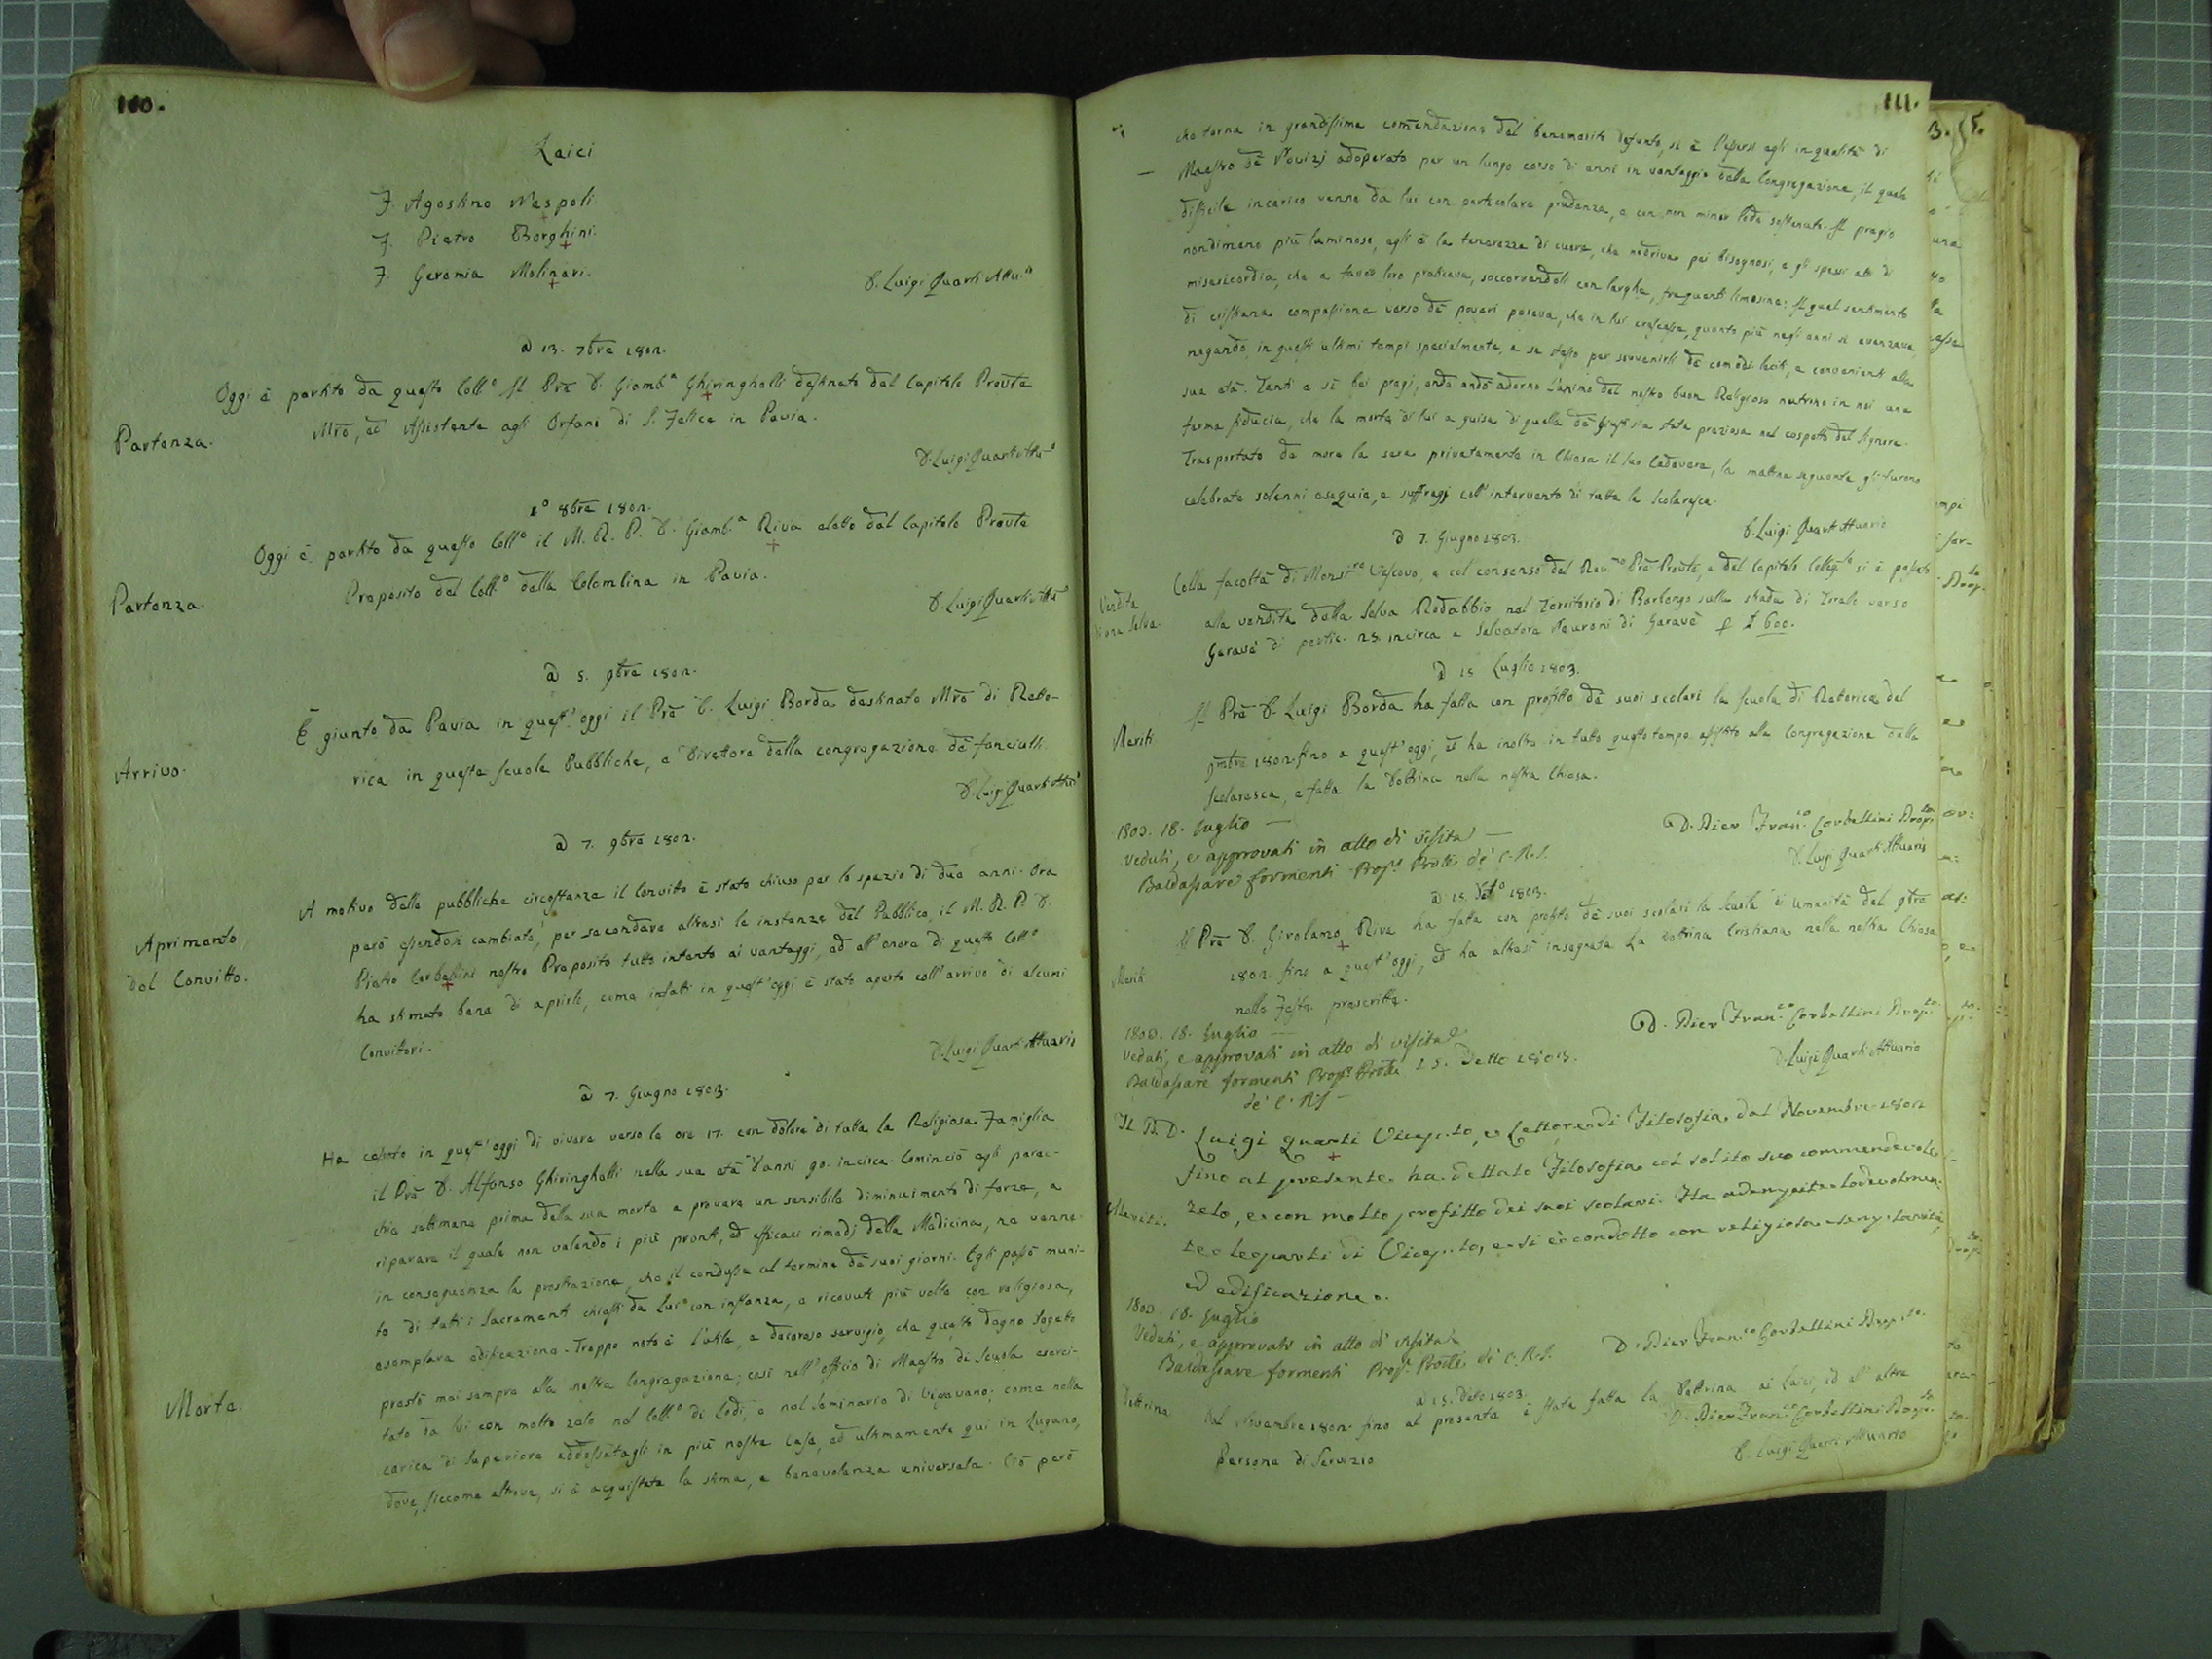 110.
Laici
F. Agostino Nespoli.
F. Pietro Borghini.
F. Geromia Molinari.
D. Luigi Quarti Attu.o
a 13. 7bre 1802.
Oggi è partito da questo Coll.o Il Prē D. Giamb.a Ghiringhelli destinato dal Capitolo Provłe
Mrō, ed Assistente agli Orfani di S. Felice in Pavia.
Partenza.
D. Luigi Quarti Attu.o
1.o 8bre 1802.
Oggi è partito da questo Coll.o il M. R. P. D. Giamb.a Riva eletto dal Capitolo Provłe
Preposito del Coll.o della Colombina in Pavia.
Partenza.
D. Luigi Quarti Attu.o
a 5. 9bre 1802.
È giunto da Pavia in quest'oggi il Prē D. Luigi Borda destinato Mrō di Reto-
rica in queste scuole Pubbliche, e Direttore della congregazione de' fanciulli.
Arrivo.
D. Luigi Quarti Attu.o
a 7. 9bre 1802.
A motivo delle pubbliche circostanze il Convitto è stato chiuso per lo spazio di due anni. Ora
però essendosi cambiate, per secondare altresì le instanze del Pubblico, il M. R. P. D.
Aprimento
del Convitto.
Pietro Corbellini nostro Preposito tutto intento ai vantaggi, ed all'onore di questo Coll.o
ha stimato bene di aprirlo, come infatti in quest'oggi è stato aperto coll'arrivo di alcuni
Convittori.
D. Luigi Quarti Attuario
a 7. Giugno 1803.
Ha cessato in quest'oggi di vivere verso le ore 17. con dolore di tutta la Religiosa Famiglia
il Prē D. Alfonso Ghiringhelli nella sua età d'anni 90. incirca. Cominciò egli parec-
chie settimane prima della sua morte a provare un sensibile diminuimento di forze, a
riparare il quale non valendo i più pronti, ed efficaci rimedj della Medicina, ne venne
in conseguenza la prostrazione, che il condusse al termine de' suoi giorni. Egli passò muni-
to di tutti i Sacramenti chiesti da Lui con instanza, e ricevuti più volte con religiosa,
esemplare edificazione. Troppo noto è l'utile, e decoroso servigio, che questo degno Sogetto
prestò mai sempre alla nostra Congregazione; così nell'officio di Maestro di Scuola eserci-
tato da lui con molto zelo nel Coll.o di Lodi, e nel Seminario di Vigevano; come nella
Morte.
carica di Superiore addossatagli in più nostre Case, ed ultimamente qui in Lugano,
dove, siccome altrove, si è acquistata la stima, e benevolenza universale. Ciò però
111.
che torna in grandissima comendazione del benemerito defunto, si è l'essersi egli in qualità di
Maestro de' Novizj adoperato per un lungo corso di anni in vantaggio della Congregazione, il quale
difficile incarico venne da lui con particolare prudenza, e con non minor lode sostenuto. Il pregio
nondimeno più luminoso, egli è la tenerezza di cuore, che nodriva pei bisognosi, e gli spessi atti di
misericordia, che a favor loro praticava, soccorrendoli con larghe, frequenti limosine: Il qual sentimento
di cristiana compassione verso de' poveri pareva, che in lui crescesse, quanto più negli anni si avanzava,
negando, in questi ultimi tempi specialmente, a se stesso per sovvenirli de' comodi leciti, e convenienti alla
sua età. Tanti e sì bei pregj, onde andò adorno l'animo del nostro buon Religioso nutrono in noi una
ferma fiducia, che la morte di lui a guisa di quella de' Giusti sia stata preziosa nel cospetto del Signore.
Trasportato da more la sera privatamente in Chiesa il suo Cadavere, la mattina seguente gli furono
celebrate solenni esequie, e suffragj coll'intervento di tutta la Scolaresca.
D. Luigi Quarti Attuario
a 7. Giugno 1803.
Colla facoltà di Monsi.re Vescovo, e col consenso del Rev.mo Prē Provłe, e del Capitolo Colleg.le si è passato
Vendita
di una Selva.
alla vendita della Selva Redabbio nel Territorio di Barbengo sulla strada di verso
Garavè di pertic. 23. incirca a Salvatore Neuroni di Garavè p £ 600.
a 15 Luglio 1803.
Il Prē D. Luigi Borda ha fatta con profitto de' suoi scolari la scuola di Retorica dal
Meriti.
9mbre 1802. fino a quest'oggi, ed ha inoltre in tutto questo tempo assistito alla Congregazione della
Scolaresca, e fatta la Dottrina nella nostra Chiesa.
D. Pier Fran.co Corbellini Prep.to
1803. 18. Luglio —
Veduti, e approvati in atto di visita —
Baldassare Formenti Prep. Provłe de' C. R. S.
D. Luigi Quarti Attuario
a 15. Detto 1803.
Il Prē D. Girolamo Riva ha fatta con profitto de' suoi scolari la scuola di umanità dal 9bre
Meriti
1802. fino a quest'oggi, ed ha altresì insegnata la Dottrina Cristiana nella nostra Chiesa
nelle Feste prescritte.
D. Pier Fran.co Corbellini Prep.to
1803. 18. Luglio —
Veduti, e approvati in atto di visita
Baldassare Formenti Prep. Provłe
de' C. R. S —
15. Detto 1803.
D. Luigi Quarti Attuario
Il P. D. Luigi Quarti Vicep.to, e Lettore di Filosofia dal Novembre 1802
fino al presente ha dettato Filosofia col solito suo commendevole
Meriti.
zelo, e con molto profitto dei suoi scolari. Ha adempite lodevolmen-
te le parti di Vicep.to, e si è condotto con religiosa esemplarità,
ed edificazione.
1803. 18. Luglio
Veduti, e approvati in atto di visita
Baldassare Formenti Prep. Provłe de' C. R. S.
D. Pier Fran.co Corbellini Prep.to
a 15. Detto 1803.
Dottrina
Dal Novembre 1802. fino al presente è stata fatta la Dottrina ai Laici, ed all'altre
Persone di Servizio
D. Pier Fran.co Corbellini Prep.to
D. Luigi Quarti Attuario